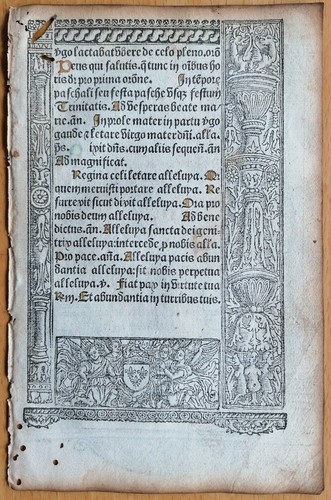 v̓go lactabat vbere de celo pleno. orō
Deus qui salutis. q̄ tunc in oībus ho
ris dr̄ pro prima orōne. In tēpore
paschali seu festa pasche vsqȝ festum
Trinitatis. Ad vesperas beate ma
rie. an̄. In prole mater in partu v̓go
gaude ⁊ letare virgo mater dn̄i. alla.
ꝟ. ixit dn̄s. cum aliis sequen̄. an̄
Ad magnificat.
Regina celi letare alleluya. Q
uem meruisti portare alleluya. Re
surrexit sicut dixit alleluya. Ora pro
nobis deum alleluya. Ad bene
dictus. an̄. Alleluya sancta dei geni
trix alleluya: intercede ꝓ nobis alla.
Pro pace. an̄a. Alleluya pacis abun
dantia alleluya: sit nobis perpetua
alleluya. ꝟ. Fiat pax in virtute tua
Rm̄. Et abundantia in turribus tuis.